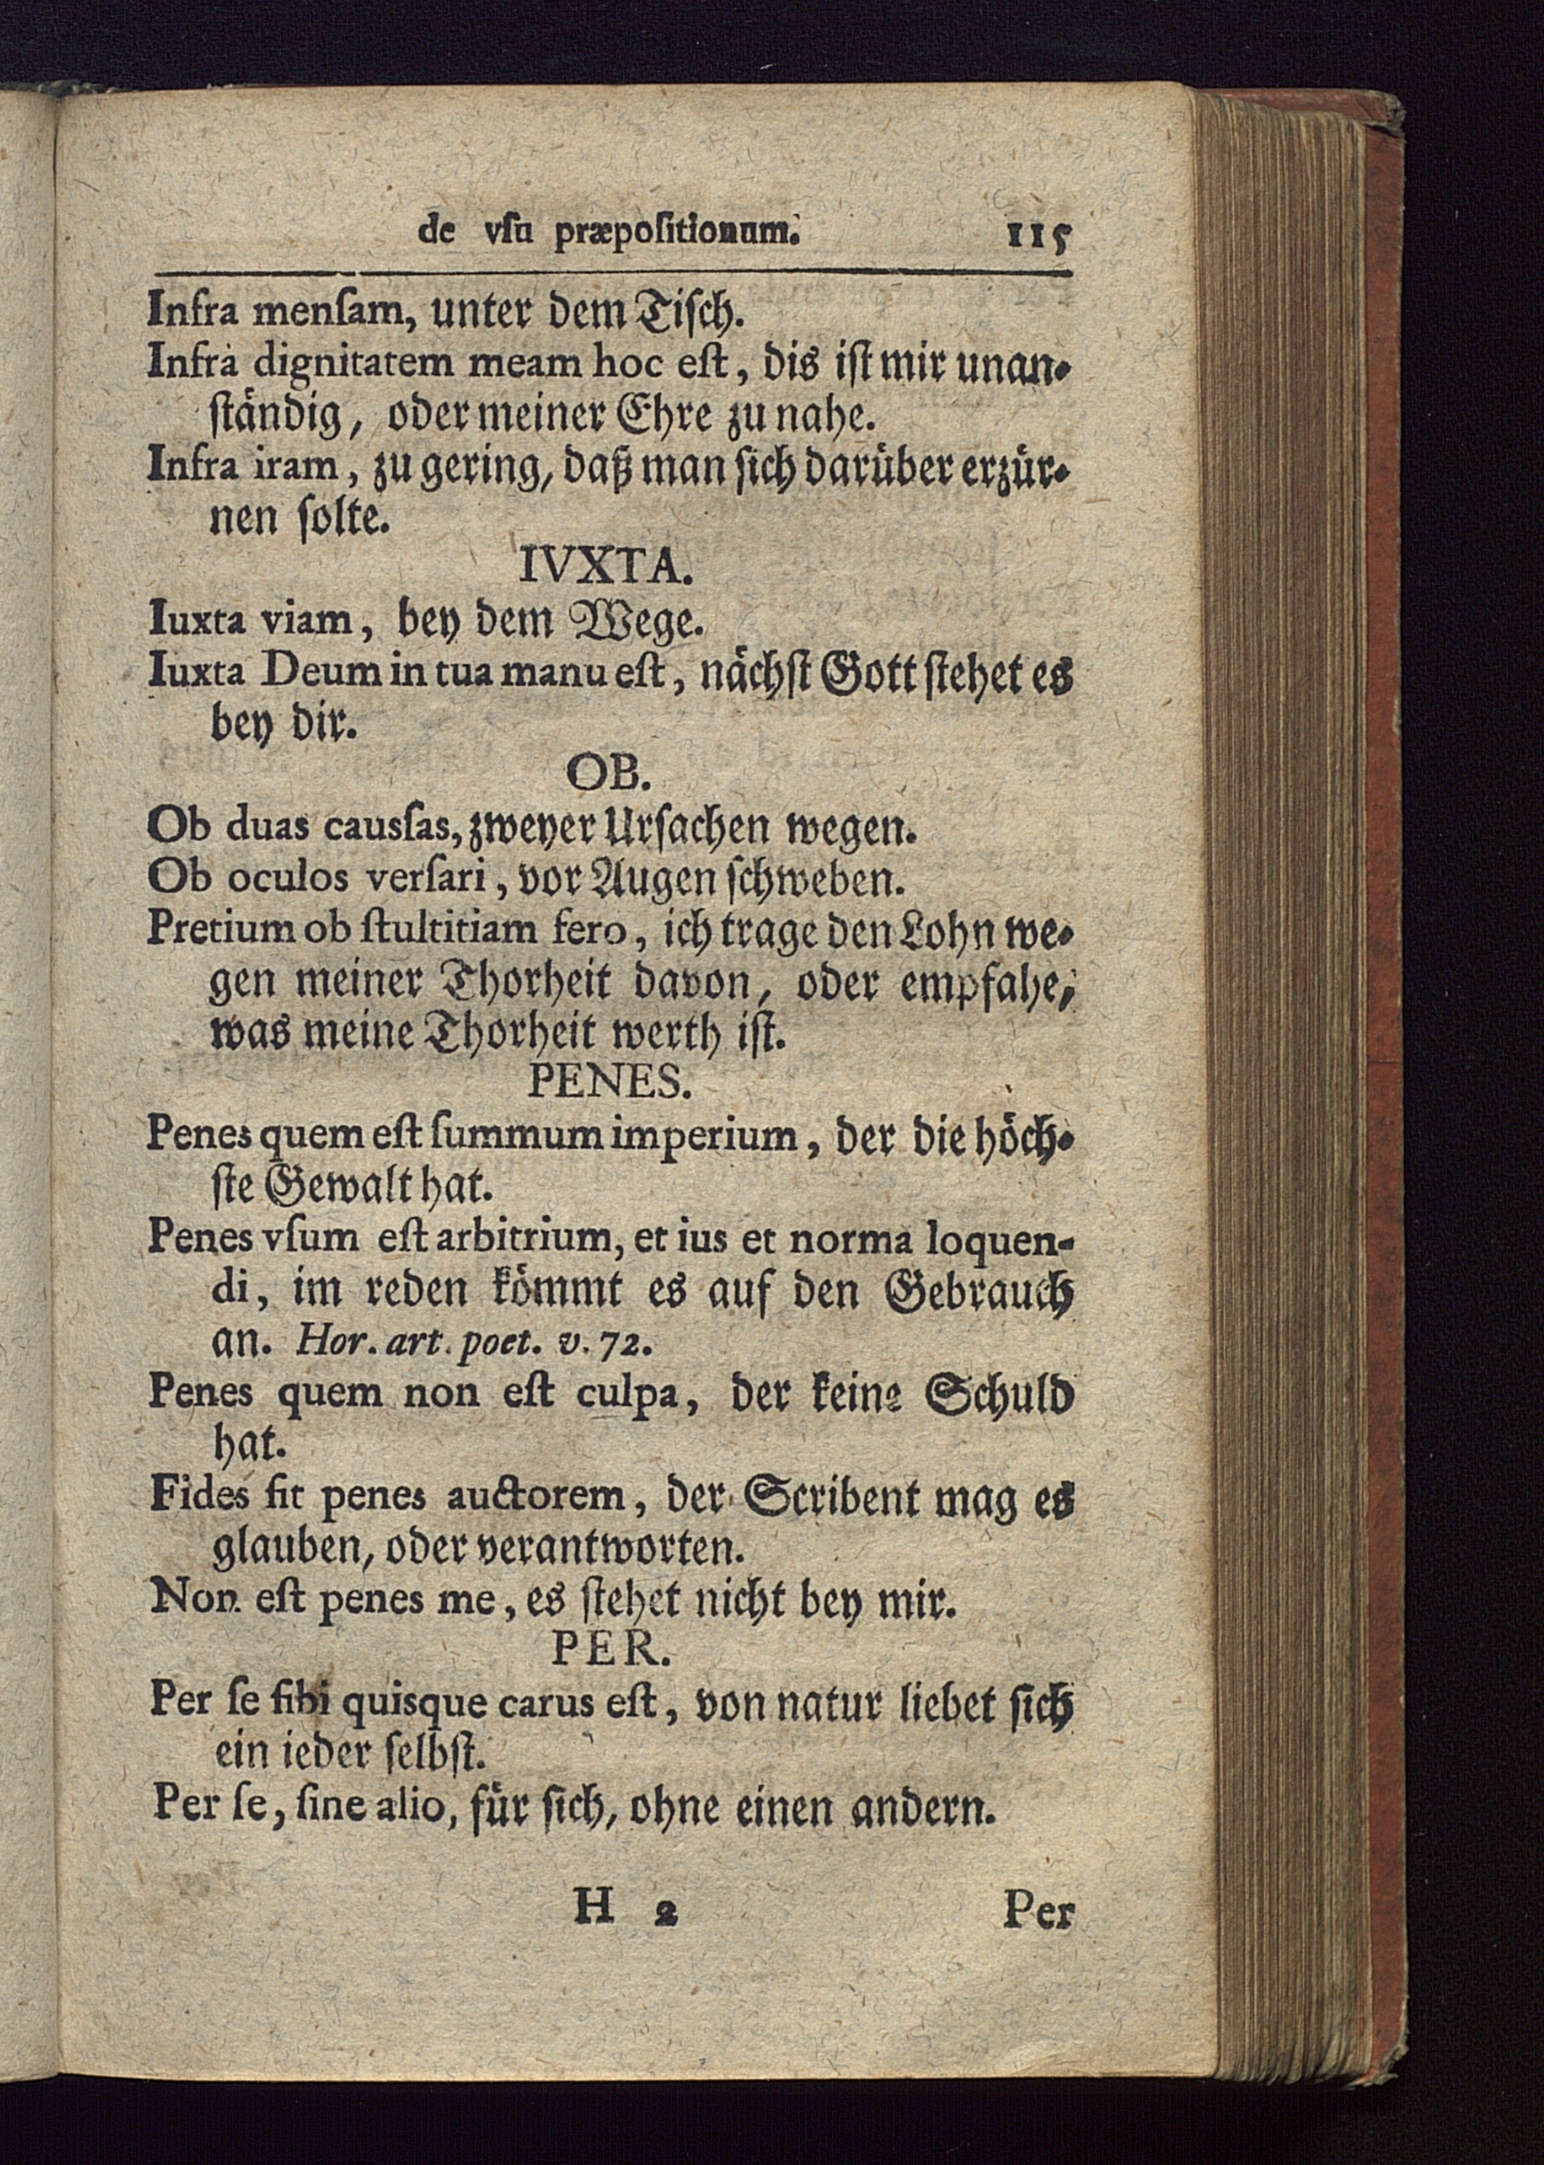 de vſu præpoſitionum. 115
Infra menſam, unter dem Tiſch.
Infra dignitatem meam hoc eſt, dis iſt mir unan-
ſtändig, oder meiner Ehre zu nahe.
Infra iram, zu gering, daß man ſich darüber erzür-
nen ſolte.
IVXTA.
Iuxta viam, bey dem Wege.
Iuxta Deum in tua manu eſt, nächſt Gott ſtehet es
bey dir.
OB.
Ob duas causſas, zweyer Urſachen wegen.
Ob oculos verſari, vor Augen ſchweben.
Pretium ob ſtultitiam fero, ich trage den Lohn we-
gen meiner Thorheit davon, oder empfahe,
was meine Thorheit werth iſt.
PENES.
Penes quem eſt ſummum imperium, der die höch-
ſte Gewalt hat.
Penes vſum eſt arbitrium, et ius et norma loquen-
di, im reden kömmt es auf den Gebrauch
an. Hor. art. poet. v. 72.
Penes quem non eſt culpa, der keine Schuld
hat.
Fides ſit penes auctorem, der Scribent mag es
glauben, oder verantworten.
Non eſt penes me, es ſtehet nicht bey mir.
PER.
Per ſe ſibi quisque carus eſt, von natur liebet ſich
ein ieder ſelbſt.
Per ſe, ſine alio, für ſich, ohne einen andern.
H 2 Per